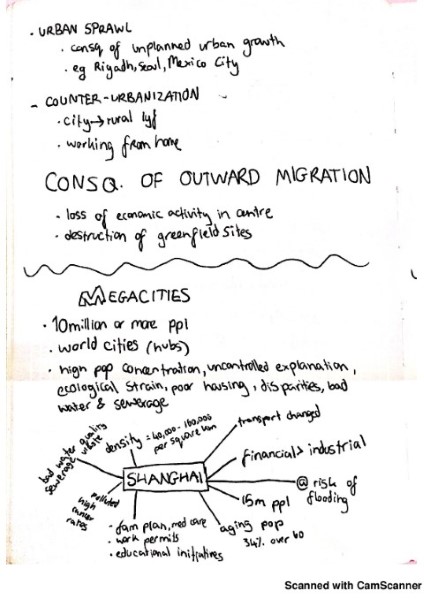 · URBAN SPRAWL
· consq of unplanned urban growth
· eg Riyadh, Seoul, Mexico City
- COUNTER-URBANIZATION
· city→rural lyf
· working from home
CONSQ. OF OUTWARD MIGRATION
· loss of economic activity in centre
· destruction of greenfield sites
MEGACITIES
· 10 million or more ppl
· world cities (hubs)
· high pop concentration, uncontrolled explanation,
ecological strain, poor housing, disparities, bad
water & sewerage
bad water quality
sewerage waste
density = 40,000 - 160,000
per square km
transport changed
financial > industrial
SHANGHAI
@ risk of
flooding
15m ppl
aging pop
34% over 60
polluted
high
cancer
rates
· fam plan, med care
· work permits
· educational initiatives
Scanned with CamScanner